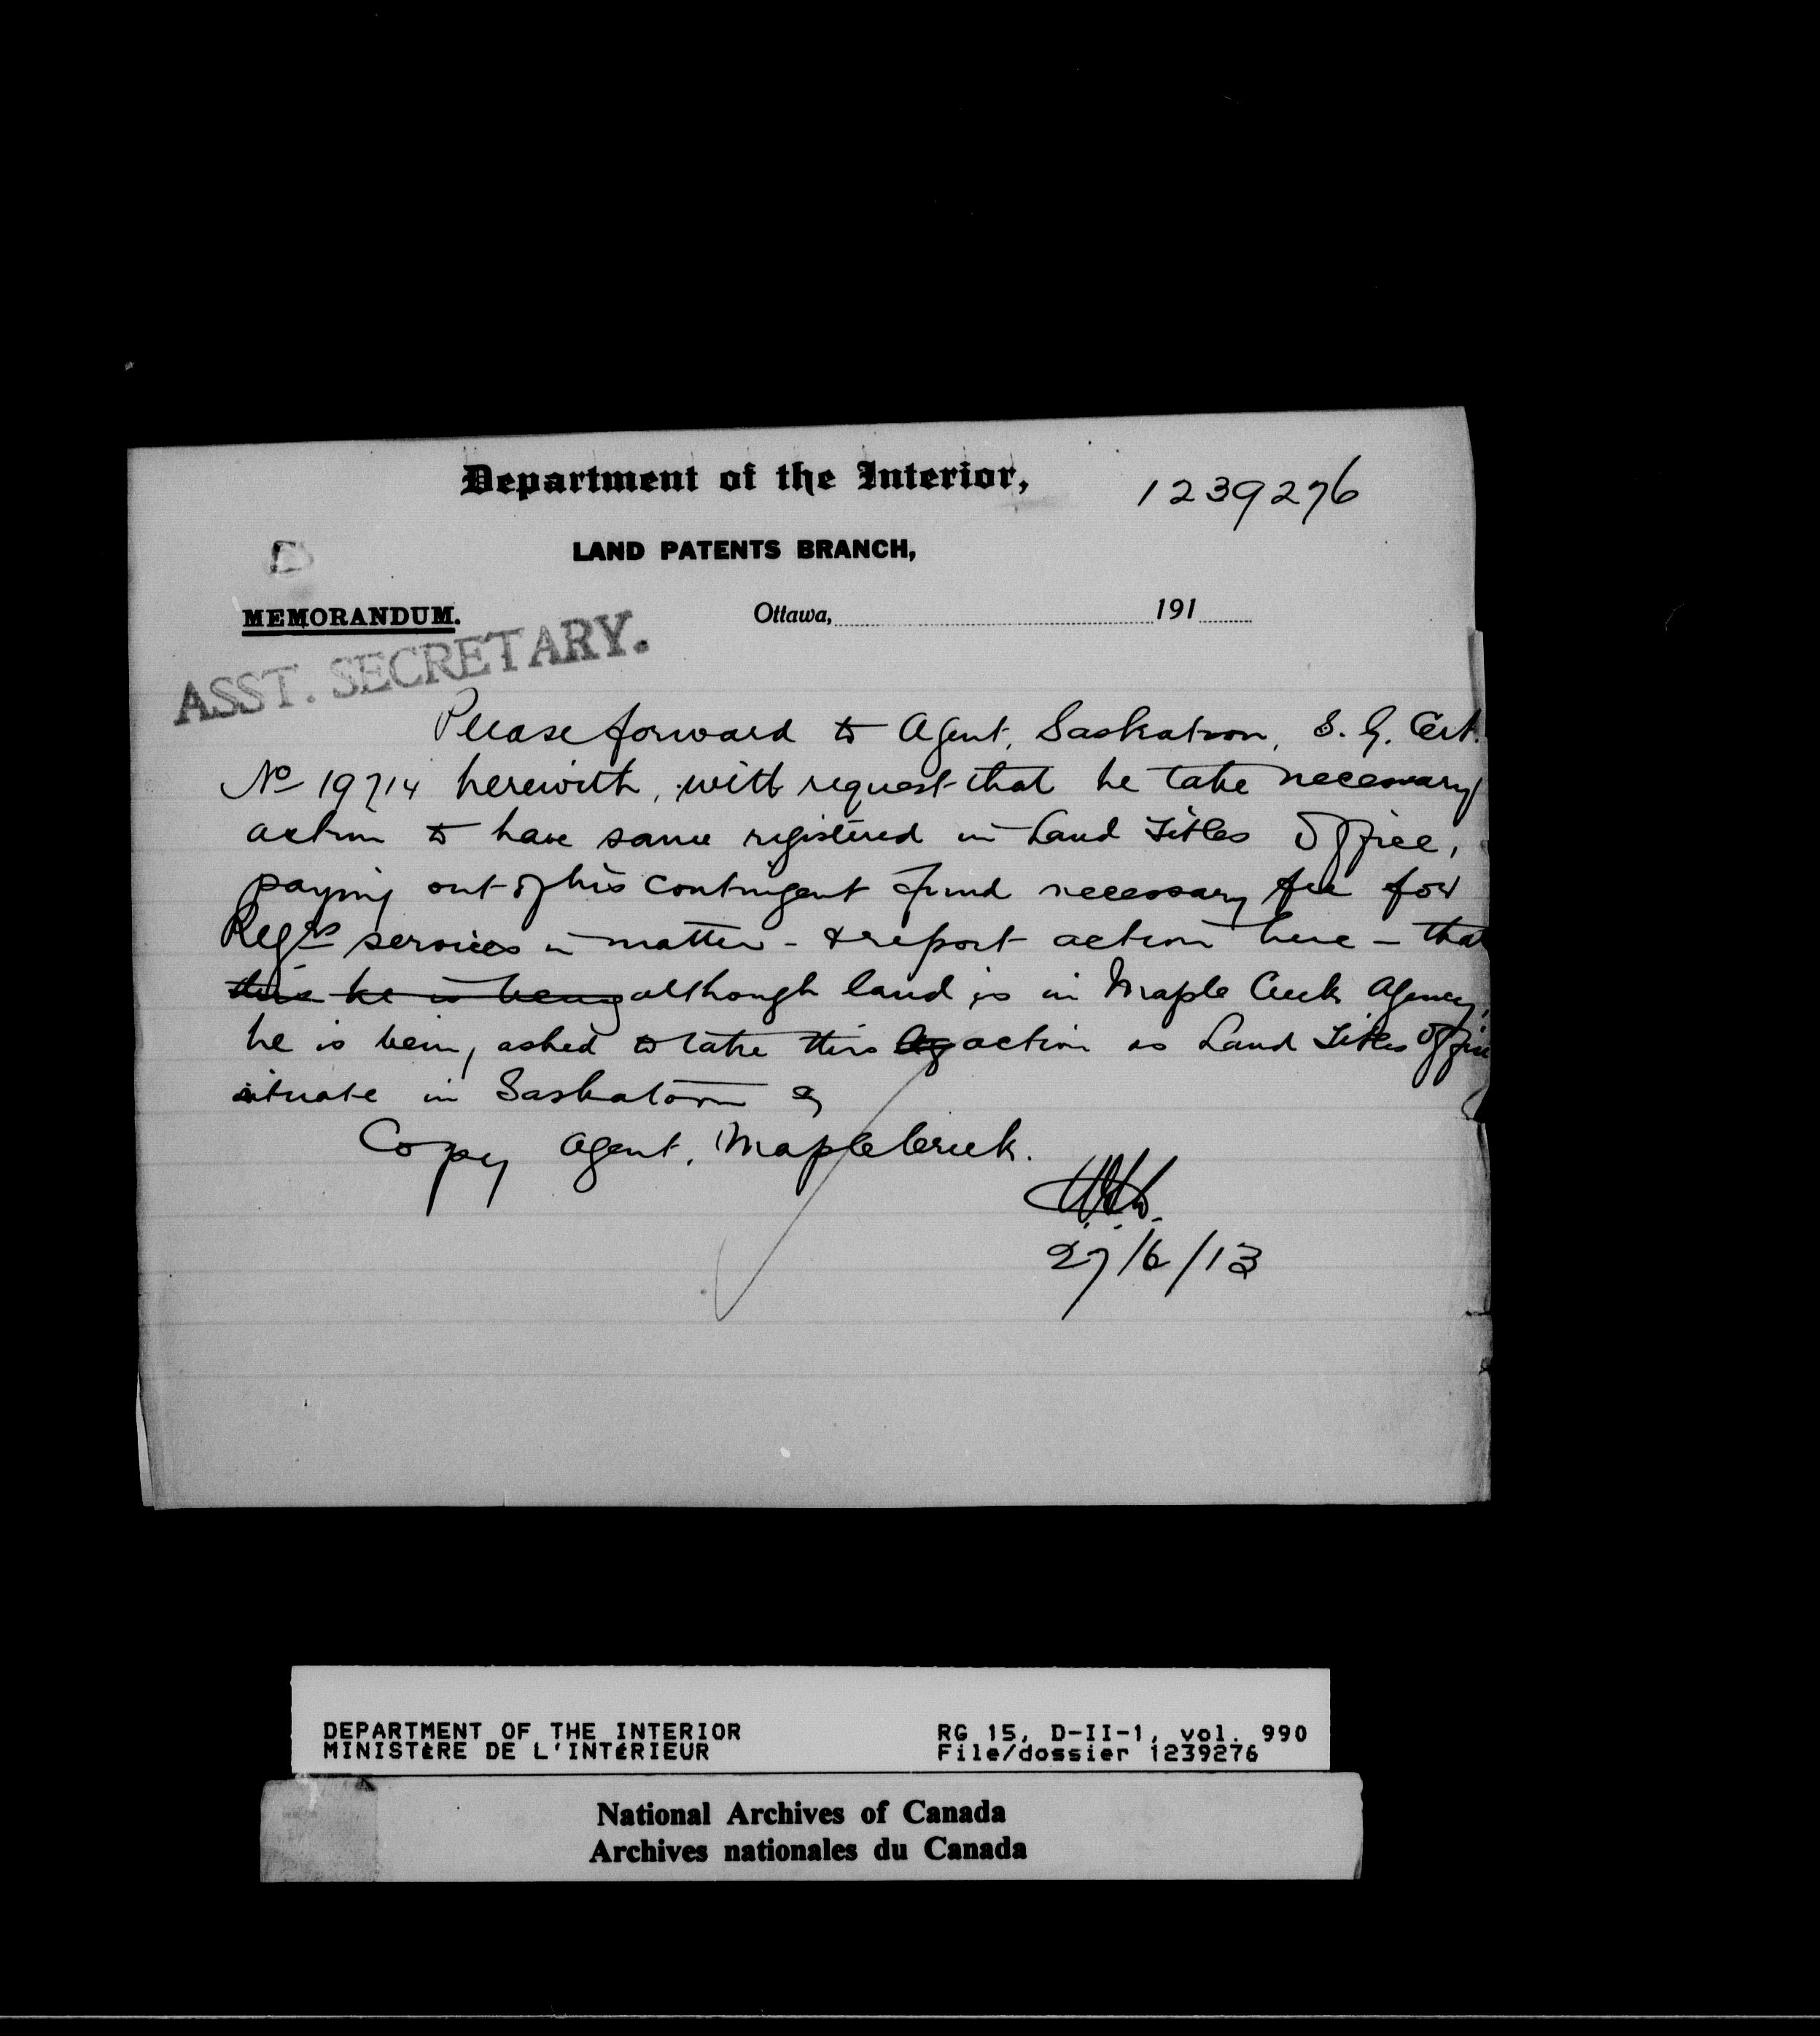 Department of the Interior,
1239276
LAND PATENTS BRANCH,
MEMORANDUM.
Ottawa, 191
ASST. SECRETARY.
Please forward to Agent, Saskatoon, S. G. Cert.
No 19714 herewith, with request that he take necessary
action to have same registered in Land Titles Office,
paying out of his contingent fund necessary fee for
Regrs services in matter - & report action here - that
this he is being although land is in Maple Creek Agency,
he is being asked to take this Ag action as Land Titles Office
situate in Saskatoon
Copy Agent, Maple Creek.
27/6/13
DEPARTMENT OF THE INTERIOR
MINISTÈRE DE L'INTÉRIEUR
RG 15, D-II-1, vol. 990
File/dossier 1239276
National Archives of Canada
Archives nationales du Canada